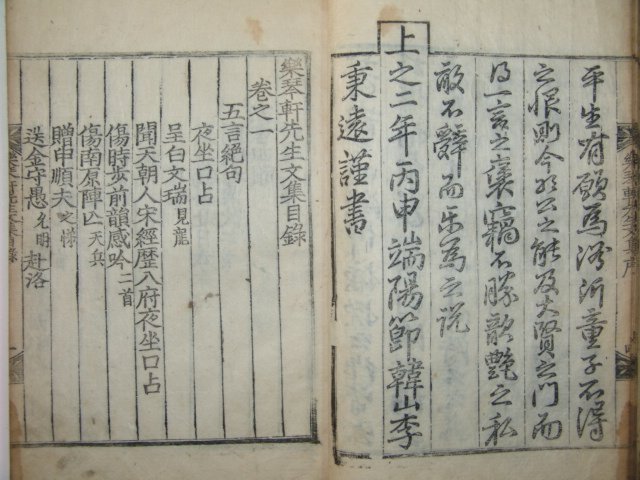 平生有願爲浴沂童子不得
之恨則今於公之能及大賢之門而
得一言之褒竊不勝歆艶之私
敢不辭而樂爲之說
上之二年丙申端陽節韓山李
秉遠謹書
樂琴軒先生文集目錄
卷之一
五言絶句
夜坐口占
呈白文瑞見龍
聞天朝人宋經歷入府夜坐口占
傷時步前韻感吟二首
傷南原陣亡天兵
贈申順夫之悌
送金守愚允明赴洛